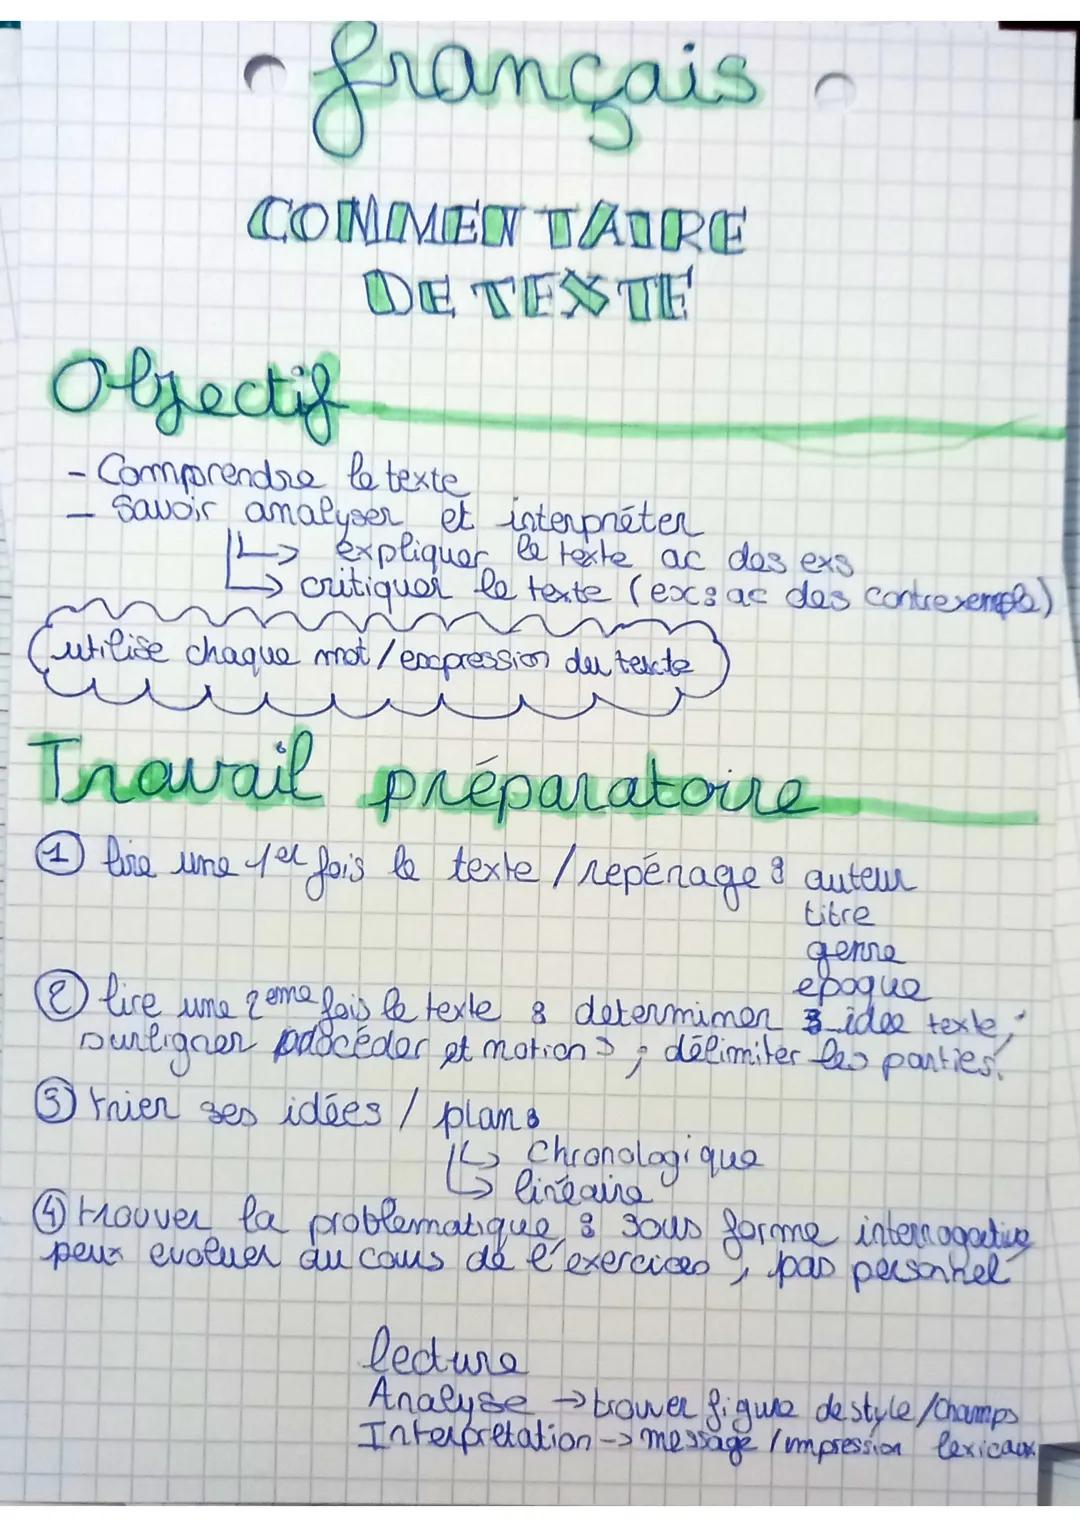 français
COMMENTAIRE
DE TEXTE
Objectif
- Comprendre le texte
- Savoir analyser et interpréter
↳ expliquer le texte ac des exs
↳ critiquer le texte (exs ac des contrexemple)
utilise chaque mot/expression du texte
Travail préparatoire
① lire une 1er fois le texte / repérage : auteur
titre
genre
epoque
② lire une 2eme fois le texte : determiner : idee texte ;
surligner procéder et notions ; délimiter les parties.
③ trier ses idées / plan :
↳ Chronologique
↳ linéaire
④ trouver la problematique : sous forme interrogative
peux evoluer au cours de l'exercices, pas personnel
lecture
Analyse → trouver figure de style / champs
Interpretation → message / impression lexicaux